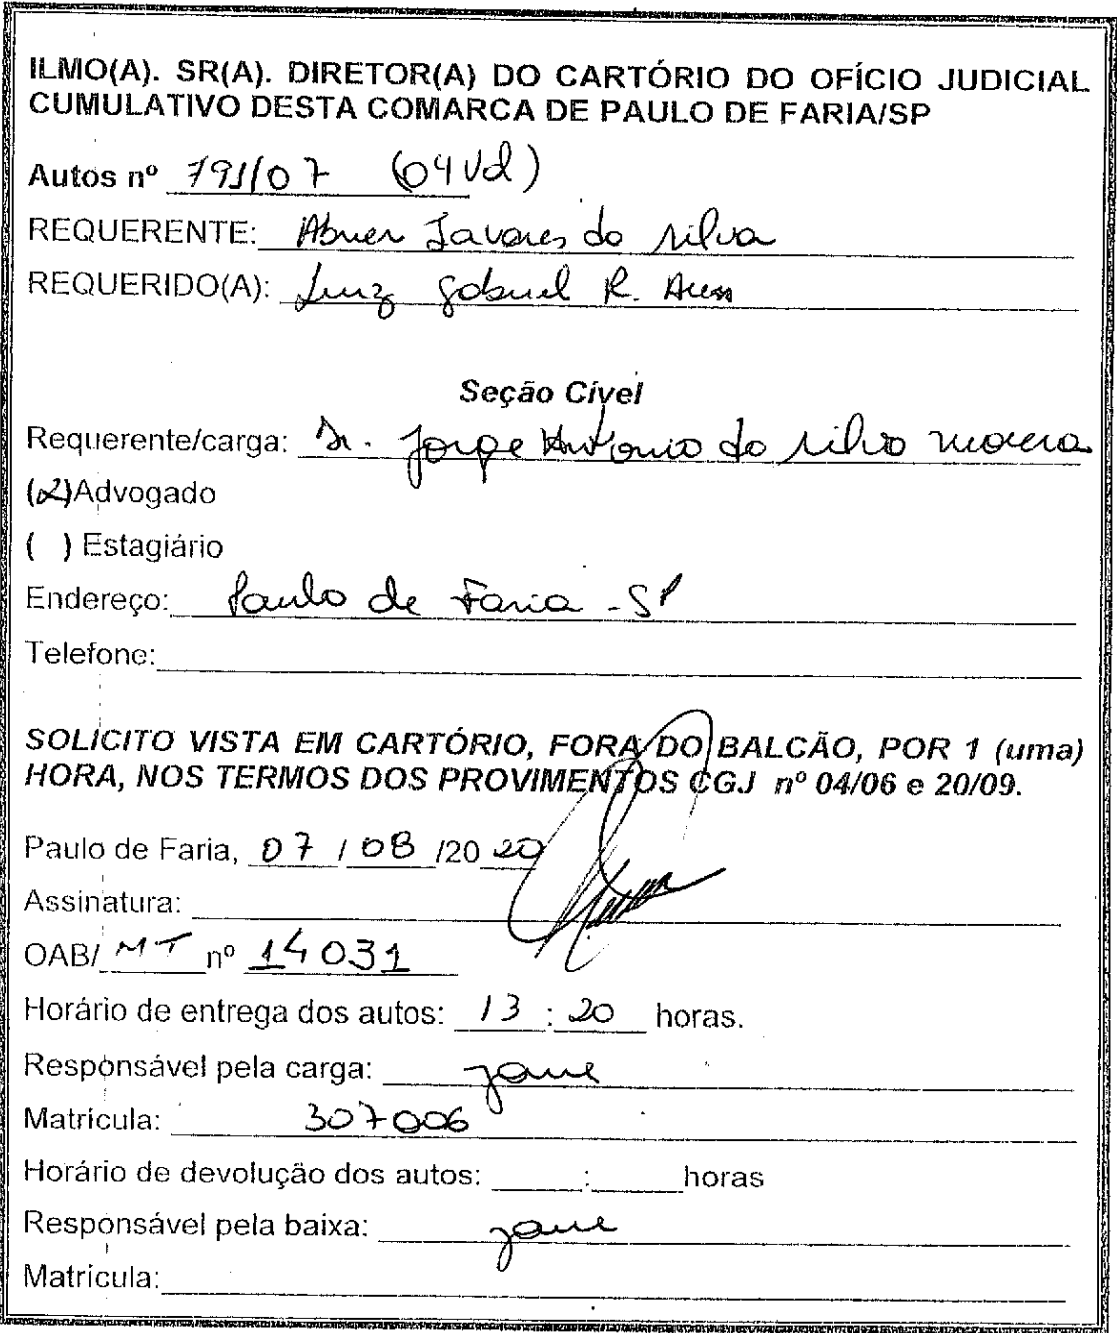 ILMO(A). SR(A). DIRETOR(A) DO CARTÓRIO DO OFÍCIO JUDICIAL
CUMULATIVO DESTA COMARCA DE PAULO DE FARIA/SP
Autos nº 791/07 (04 Vol)
REQUERENTE: Abner Tavares da Silva
REQUERIDO(A): Luiz Gabriel R.
Seção Cível
Requerente/carga: Dr. Jorge Antonio da Silva
( )Advogado
( ) Estagiário
Endereço: Paulo de Faria - SP
Telefone:
SOLICITO VISTA EM CARTÓRIO, FORA DO BALCÃO, POR 1 (uma)
HORA, NOS TERMOS DOS PROVIMENTOS CGJ nº 04/06 e 20/09.
Paulo de Faria, 07 / 08 /20 20
Assinatura:
OAB/ MT nº 14031
Horário de entrega dos autos: 13 : 20 horas.
Responsável pela carga: Jane
Matrícula: 307006
Horário de devolução dos autos: : horas
Responsável pela baixa: Jane
Matrícula: